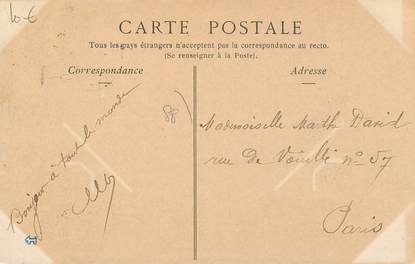 10 €
CARTE POSTALE
Tous les pays étrangers n'acceptent pas la correspondance au recto.
(Se renseigner à la Poste).
Correspondance
Adresse
Bonjour à tout le monde
Mademoiselle Math David
rue de Vouillé n° 57
Paris